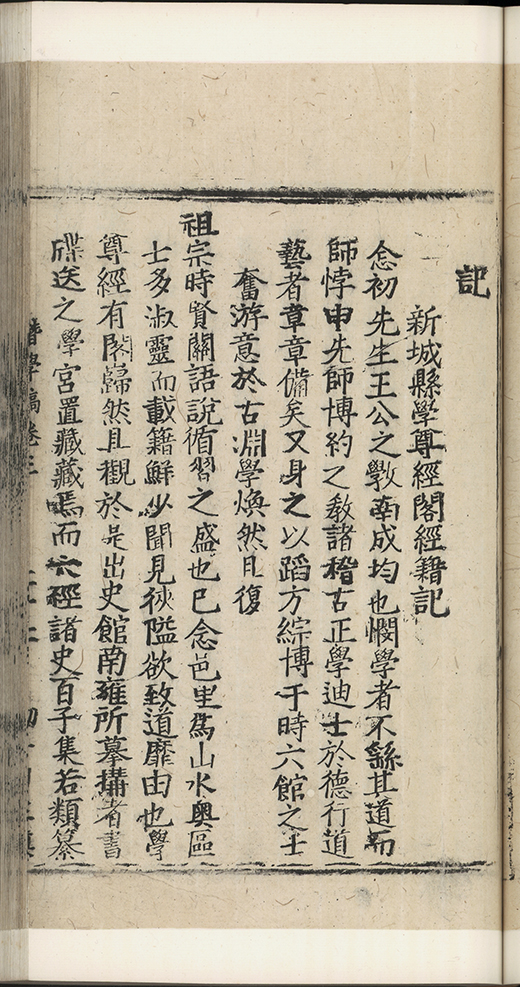 記
新城縣學尊經閣經籍記
念初先生王公之教南成均也憫學者不繇其道而
師悖申先師博約之教諸稽古正學迪士於德行道
藝者章章備矣又身之以蹈方綜博于時六館之士
奮游意於古淵學煥然且復
祖宗時賢關語說循習之盛也已念邑里為山水奧區
士多淑靈而載籍鮮少聞見狹隘欲致道靡由也學
尊經有閣巋然且觀於是出史館南雍所摹搆者書
牒送之學宮置藏藏焉而六經諸史百子集若類纂
學稿卷三